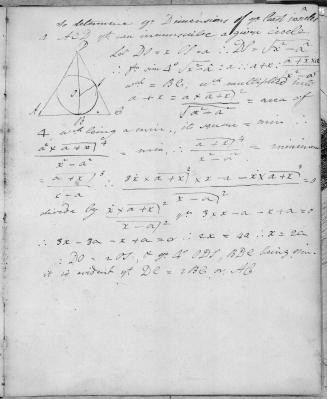 to determine ye Dimensions of ye least isosceles
∆ ACD yt can circumscribe a given circle
Let DO = x OS = a ∴ DS = √x²-a²
∴ by sim ∆s √x²-a² : a :: a+x : a × a+x / √x²-a²
wch = BC, wch multiplied into
a+x = a × a+x)² / √x²-a² = area of
∆ wch being a min., it square = min ∴
a² × a+x)⁴ / x²-a² = min ∴ a+x)⁴ / x²-a² = minimum
= a+x)³ / x-a ∴ 3ẋ × a+x)² × x-a - ẋ × a+x)³ / x-a)² = 0
divide by ẋ × a+x)² / x-a)² yn 3 × x-a - x+a = 0
∴ 3x - 3a - x + a = 0 ∴ 2x = 4a ∴ x = 2a
∴ DO = 2OS, & ye ∆s ODS, BDC being sim.
it is evident yt DC = 2BC or AC
A
D
O
S
B
C